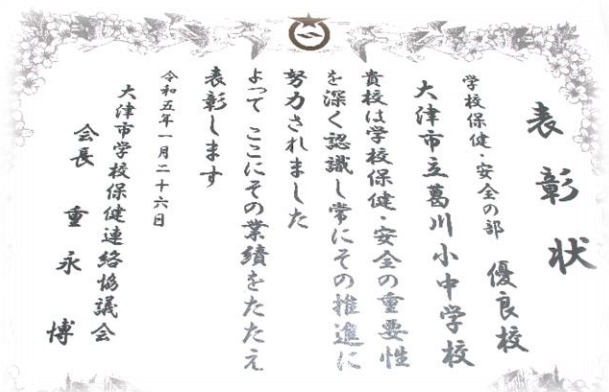 表彰状
学校保健・安全の部 優良校
大津市立葛川小中学校
貴校は学校保健・安全の重要性
を深く認識し常にその推進に
努力されました
よって ここにその業績をたたえ
表彰します
令和五年一月二十六日
大津市学校保健連絡協議会
会長 重永 博